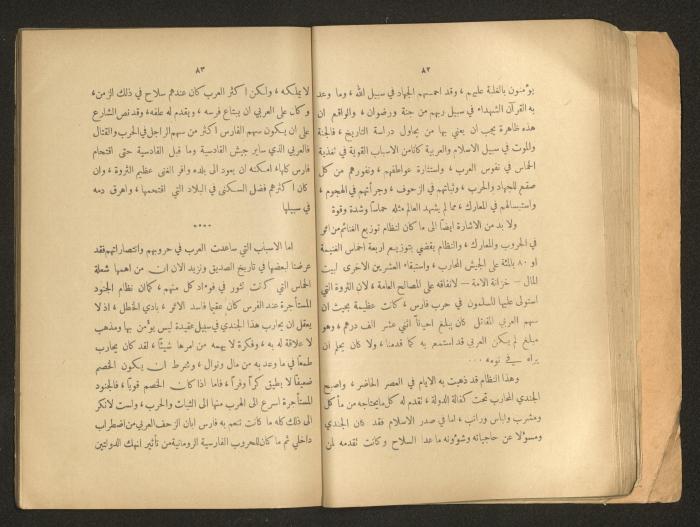 ٨٢
يؤمنون بالغلبة عليهم ، وقد احمسهم الجهاد في سبيل الله ، وما وعد
به القرآن الشهداء في سبيل ربهم من جنة ورضوان ، والواقع ان
هذه ظاهرة يجب ان يعنى بها من يحاول دراسة التاريخ ، فالجنة
والموت في سبيل الاسلام والعربية كانا من الاسباب القوية في تغذية
الحماس في نفوس العرب ، واستثارة عواطفهم ، ونفورهم من كل
صقع للجهاد والحرب ، وثباتهم في الزحوف ، وجرأتهم في الهجوم ،
واستبسالهم في المعارك ، مما لم يشهد العالم مثله حماساً وشدة وقوة
ولا بد من الاشارة ايضاً الى ما كان لنظام توزيع الغنائم من اثر
في الحروب والمعارك ، والنظام يقضي بتوزيع اربعة اخماس الغنيمة
او ٨٠ بالمئة على الجيش المحارب ، واستبقاء العشرين الاخرى لبيت
المال – خزانة الامة – لانفاقه على المصالح العامة ، لان الثروة التي
استولى عليها المسلمون في حرب فارس ، كانت عظيمة بحيث ان
سهم العربي المقاتل كان يبلغ احياناً اثني عشر الف درهم ، وهو
مبلغ لم يكن العربي قد استمتع به كما قدمنا ، ولا كان يحلم ان
يراه في نومه ...
وهذا النظام قد ذهبت به الايام في العصر الحاضر ، واصبح
الجندي المحارب تحت كفالة الدولة ، تقدم له كل ما يحتاجه من مأكل
ومشرب ولباس وراتب ، اما في صدر الاسلام فقد كان الجندي
ومسؤولا عن حاجياته وشؤونه ما عدا السلاح وكانت تقدمه لمن
٨٣
لا يملكه ، ولكن اكثر العرب كان عندهم سلاح في ذلك الزمن ،
وكان على العربي ان يبتاع فرسه ، ويقدم له علفه ، وقد نص الشارع
على ان يكون سهم الفارس اكثر من سهم الراجل في الحرب والقتال
فالعربي الذي ساير جيش القادسية وما قبل القادسية حتى اقتحام
فارس كلها ، امكنه ان يعود الى بلده وافر الغنى عظيم الثروة ، وان
كان اكثرهم فضل السكنى في البلاد التي اقتحمها ، واهرق دمه
في سبيلها
****
اما الاسباب التي ساعدت العرب في حروبهم وانتصاراتهم فقد
عرضنا لبعضها في تاريخ الصديق ونزيد الان ان من اهمها شعلة
الحماس التي كانت تثور في فؤاد كل منهم ، كما ان نظام الجنود
المستأجرة عند الفرس كان عقيما فاسد الاثر ، بادي الخطل ، اذ لا
يعقل ان يحارب هذا الجندي في سبيل عقيدة ليس يؤمن بها ومذهب
لا علاقة له به ، وفكرة لا يهمه من امرها شيئاً ، لقد كان يحارب
طمعاً في ما وعد به من مال ونوال ، وشرط ان يكون الخصم
ضعيفاً لا يطيق كراً وفراً ، فاما اذا كان الخصم قوياً ، فالجنود
المستأجرة اسرع الى الهرب منها الى الثبات والحرب ، ولست لانكر
الى ذلك كله ما كانت تنعم به فارس ابان الزحف العربي من اضطراب
داخلي ثم ما كان للحروب الفارسية الرومانية من تأثير انهك الدولتين